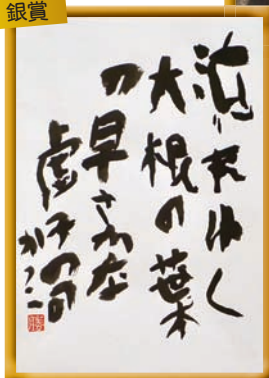 銀賞
流れゆく
大根の葉
の早さかな
虚子の句